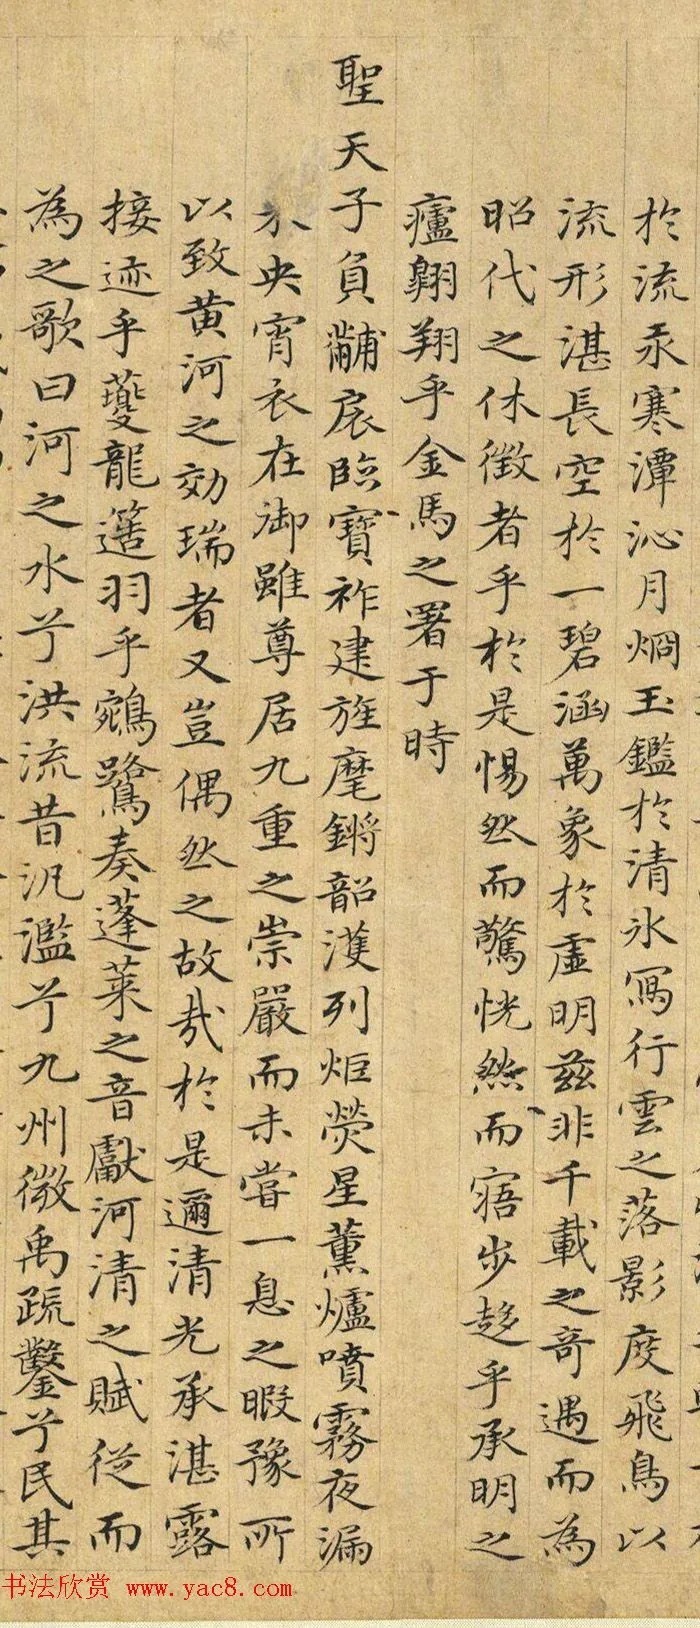 於流汞寒潭沁月炯玉鑑於清氷寫行雲之落影度飛鳥以
流形湛長空於一碧涵萬象於虛明兹非千載之奇遇而為
昭代之休徵者乎於是惕然而驚恍然而寤步趍乎承明之
廬翺翔乎金馬之署于時
聖天子負黼扆臨寶祚建旌麾鏘韶濩列炬熒星薰爐噴霧夜漏
未央宵衣在御雖尊居九重之崇嚴而未嘗一息之暇豫所
以致黄河之効瑞者又豈偶然之故㢤於是邇清光承湛露
接迹乎夔龍簉羽乎鵷鷺奏蓬萊之音獻河清之賦從而
為之歌曰河之水兮洪流昔汎濫兮九州微禹疏鑿兮民其
书法欣赏 www.yac8.com